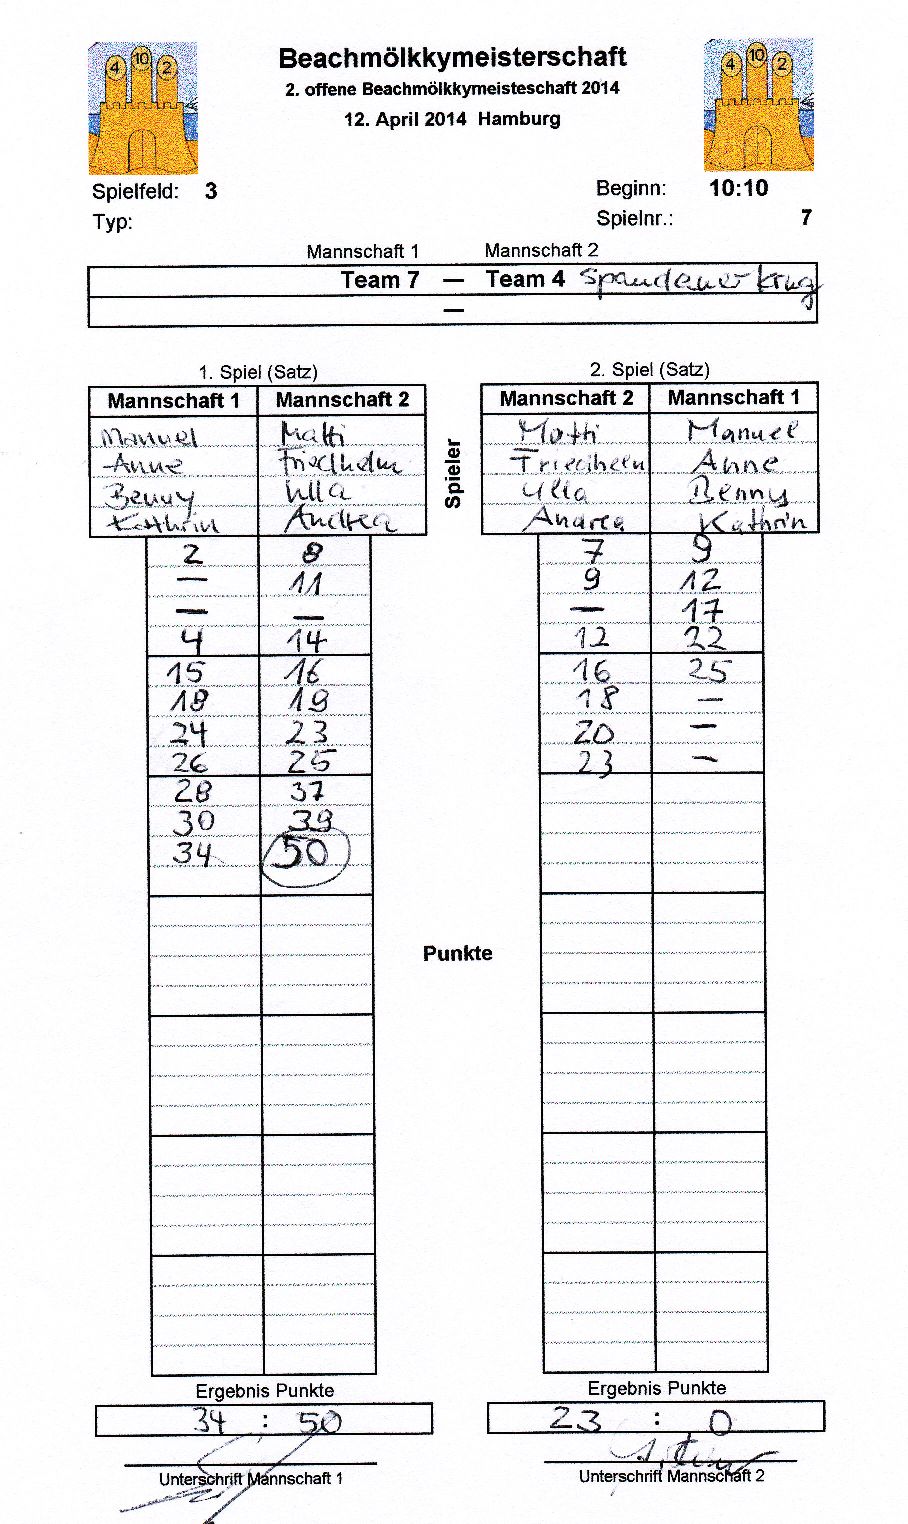 4 10 2
4 10 2
Beachmölkkymeisterschaft
2. offene Beachmölkkymeisteschaft 2014
12. April 2014 Hamburg
Spielfeld: 3
Beginn: 10:10
Typ:
Spielnr.: 7
Mannschaft 1 Mannschaft 2
Team 7 — Team 4 Spandauer Krug
—
1. Spiel (Satz) 2. Spiel (Satz)
Mannschaft 1 Mannschaft 2 Mannschaft 2 Mannschaft 1
Manuel Matti Matti Manuel
Anne Friedhelm Friedhelm Anne
Benny Ulla Ulla Benny
Kathrin Andrea Andrea Kathrin
Spieler
2 8 7 9
— 11 9 12
— — — 17
4 14 12 22
15 16 16 25
18 19 18 —
24 23 20 —
26 25 23 —
28 37
30 39
34 50
Punkte
Ergebnis Punkte Ergebnis Punkte
34 : 50 23 : 0
Unterschrift Mannschaft 1 Unterschrift Mannschaft 2